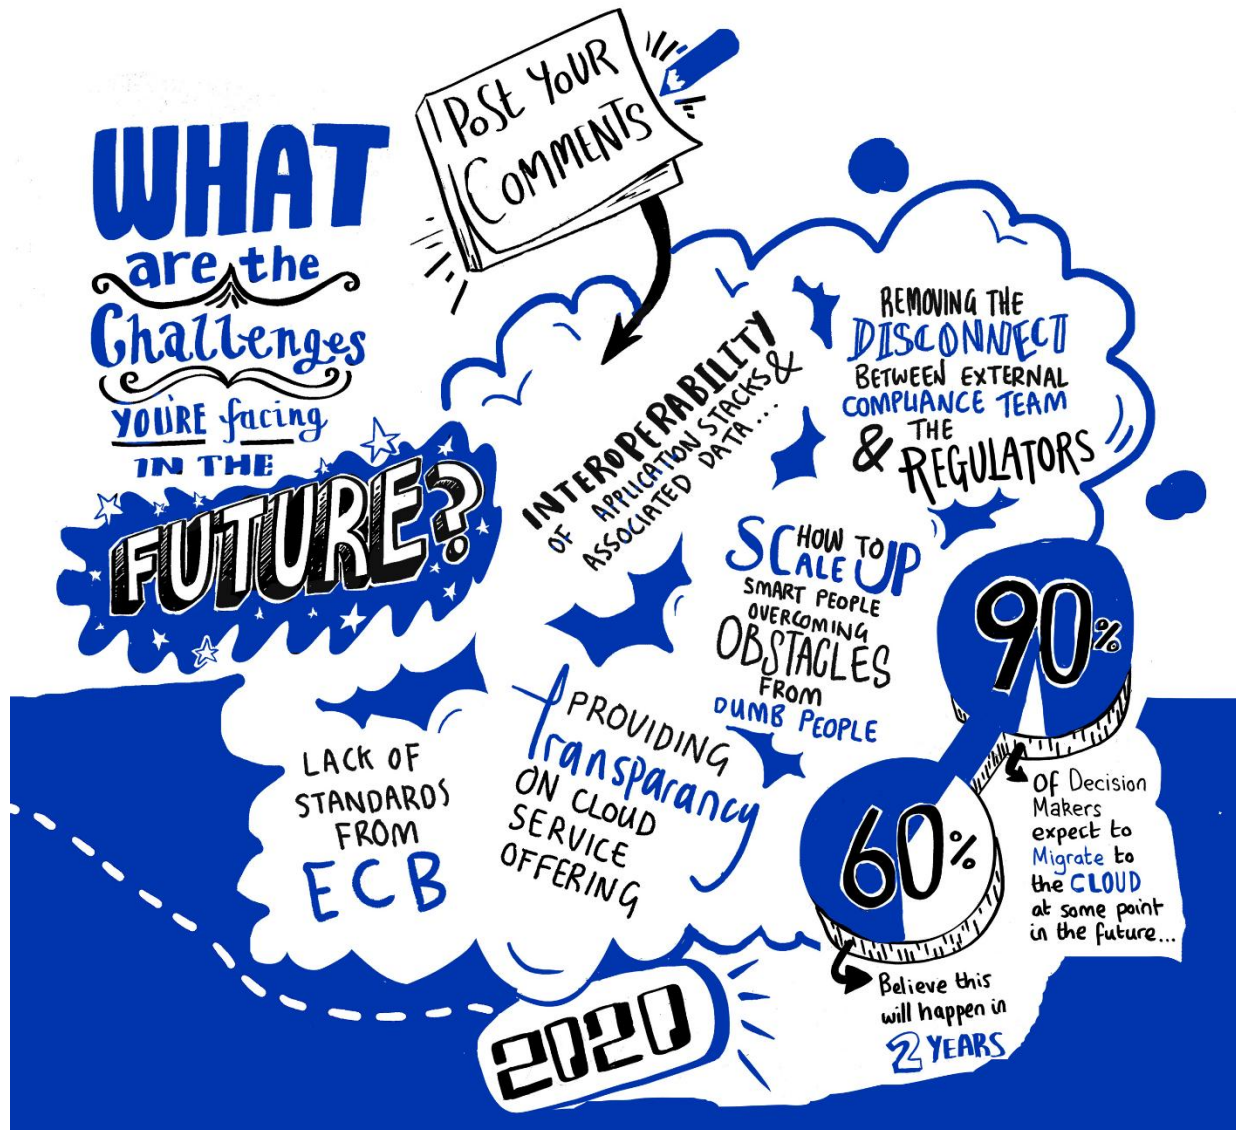 WHAT
are the
Challenges
YOU'RE facing
IN THE
FUTURE?
POST YOUR
COMMENTS
INTEROPERABILITY
OF APPLICATION STACKS &
ASSOCIATED DATA...
REMOVING THE
DISCONNECT
BETWEEN EXTERNAL
COMPLIANCE TEAM
& THE
REGULATORS
HOW TO
SCALE UP
SMART PEOPLE
OVERCOMING
OBSTACLES
FROM
DUMB PEOPLE
LACK OF
STANDARDS
FROM
ECB
PROVIDING
Transparancy
ON CLOUD
SERVICE
OFFERING
90%
OF Decision
Makers
expect to
Migrate to
the CLOUD
at some point
in the future...
60%
Believe this
will happen in
2 YEARS
2020